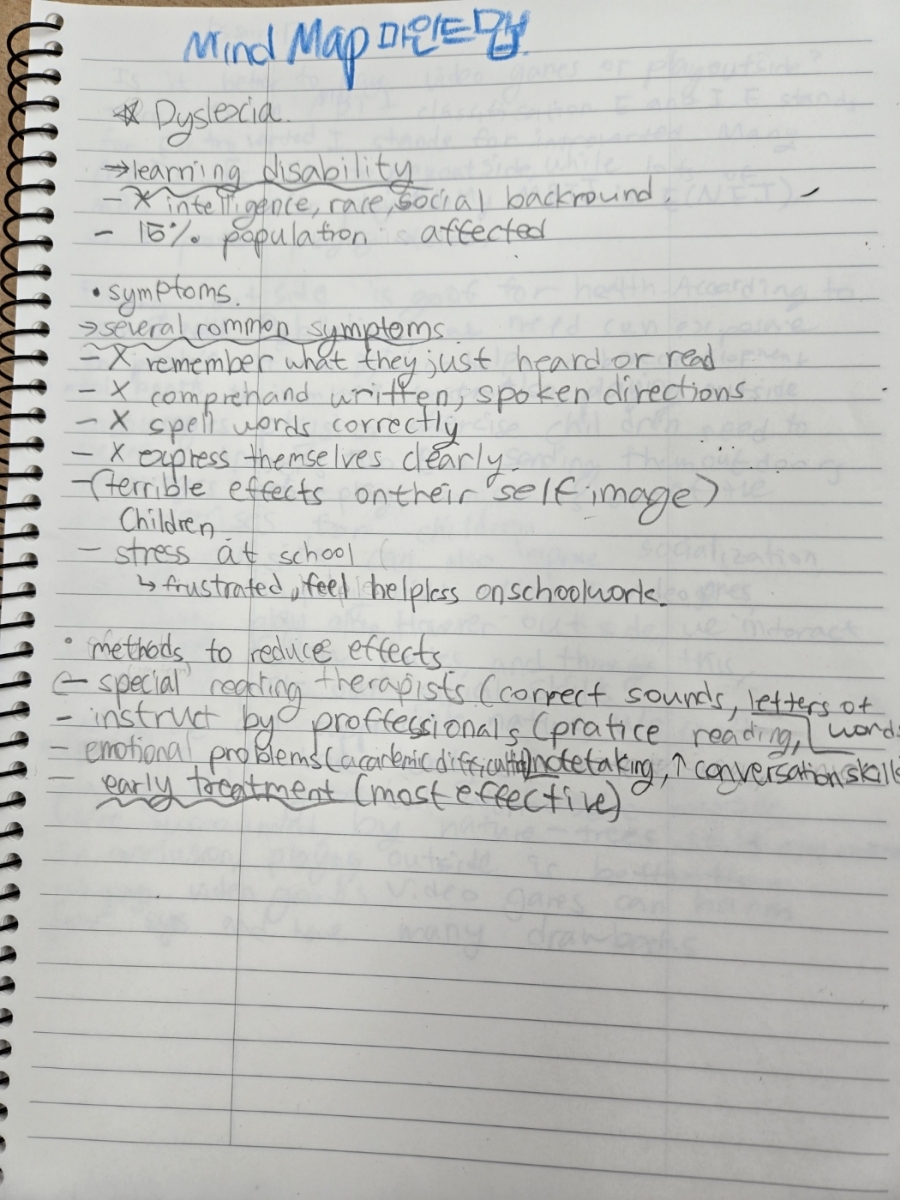 Mind Map 마인드맵
* Dyslexia.
→learning disability
- X intelligence, race, social backround.
- 15% population affected
• symptoms.
→several common symptoms
- X remember what they just heard or read
- X comprehand written, spoken directions
- X spell words correctly
- X express themselves clearly.
-(terrible effects on their self image)
Children
- stress at school
↳ frustrated, feel helpless on schoolwork.
• methods to reduce effects
- special reading therapists (correct sounds, letters of words
- instruct by proffessionals (pratice reading,
- emotional problems (academic difficulties) notetaking, ↑ conversation skills
- early treatment (most effective)